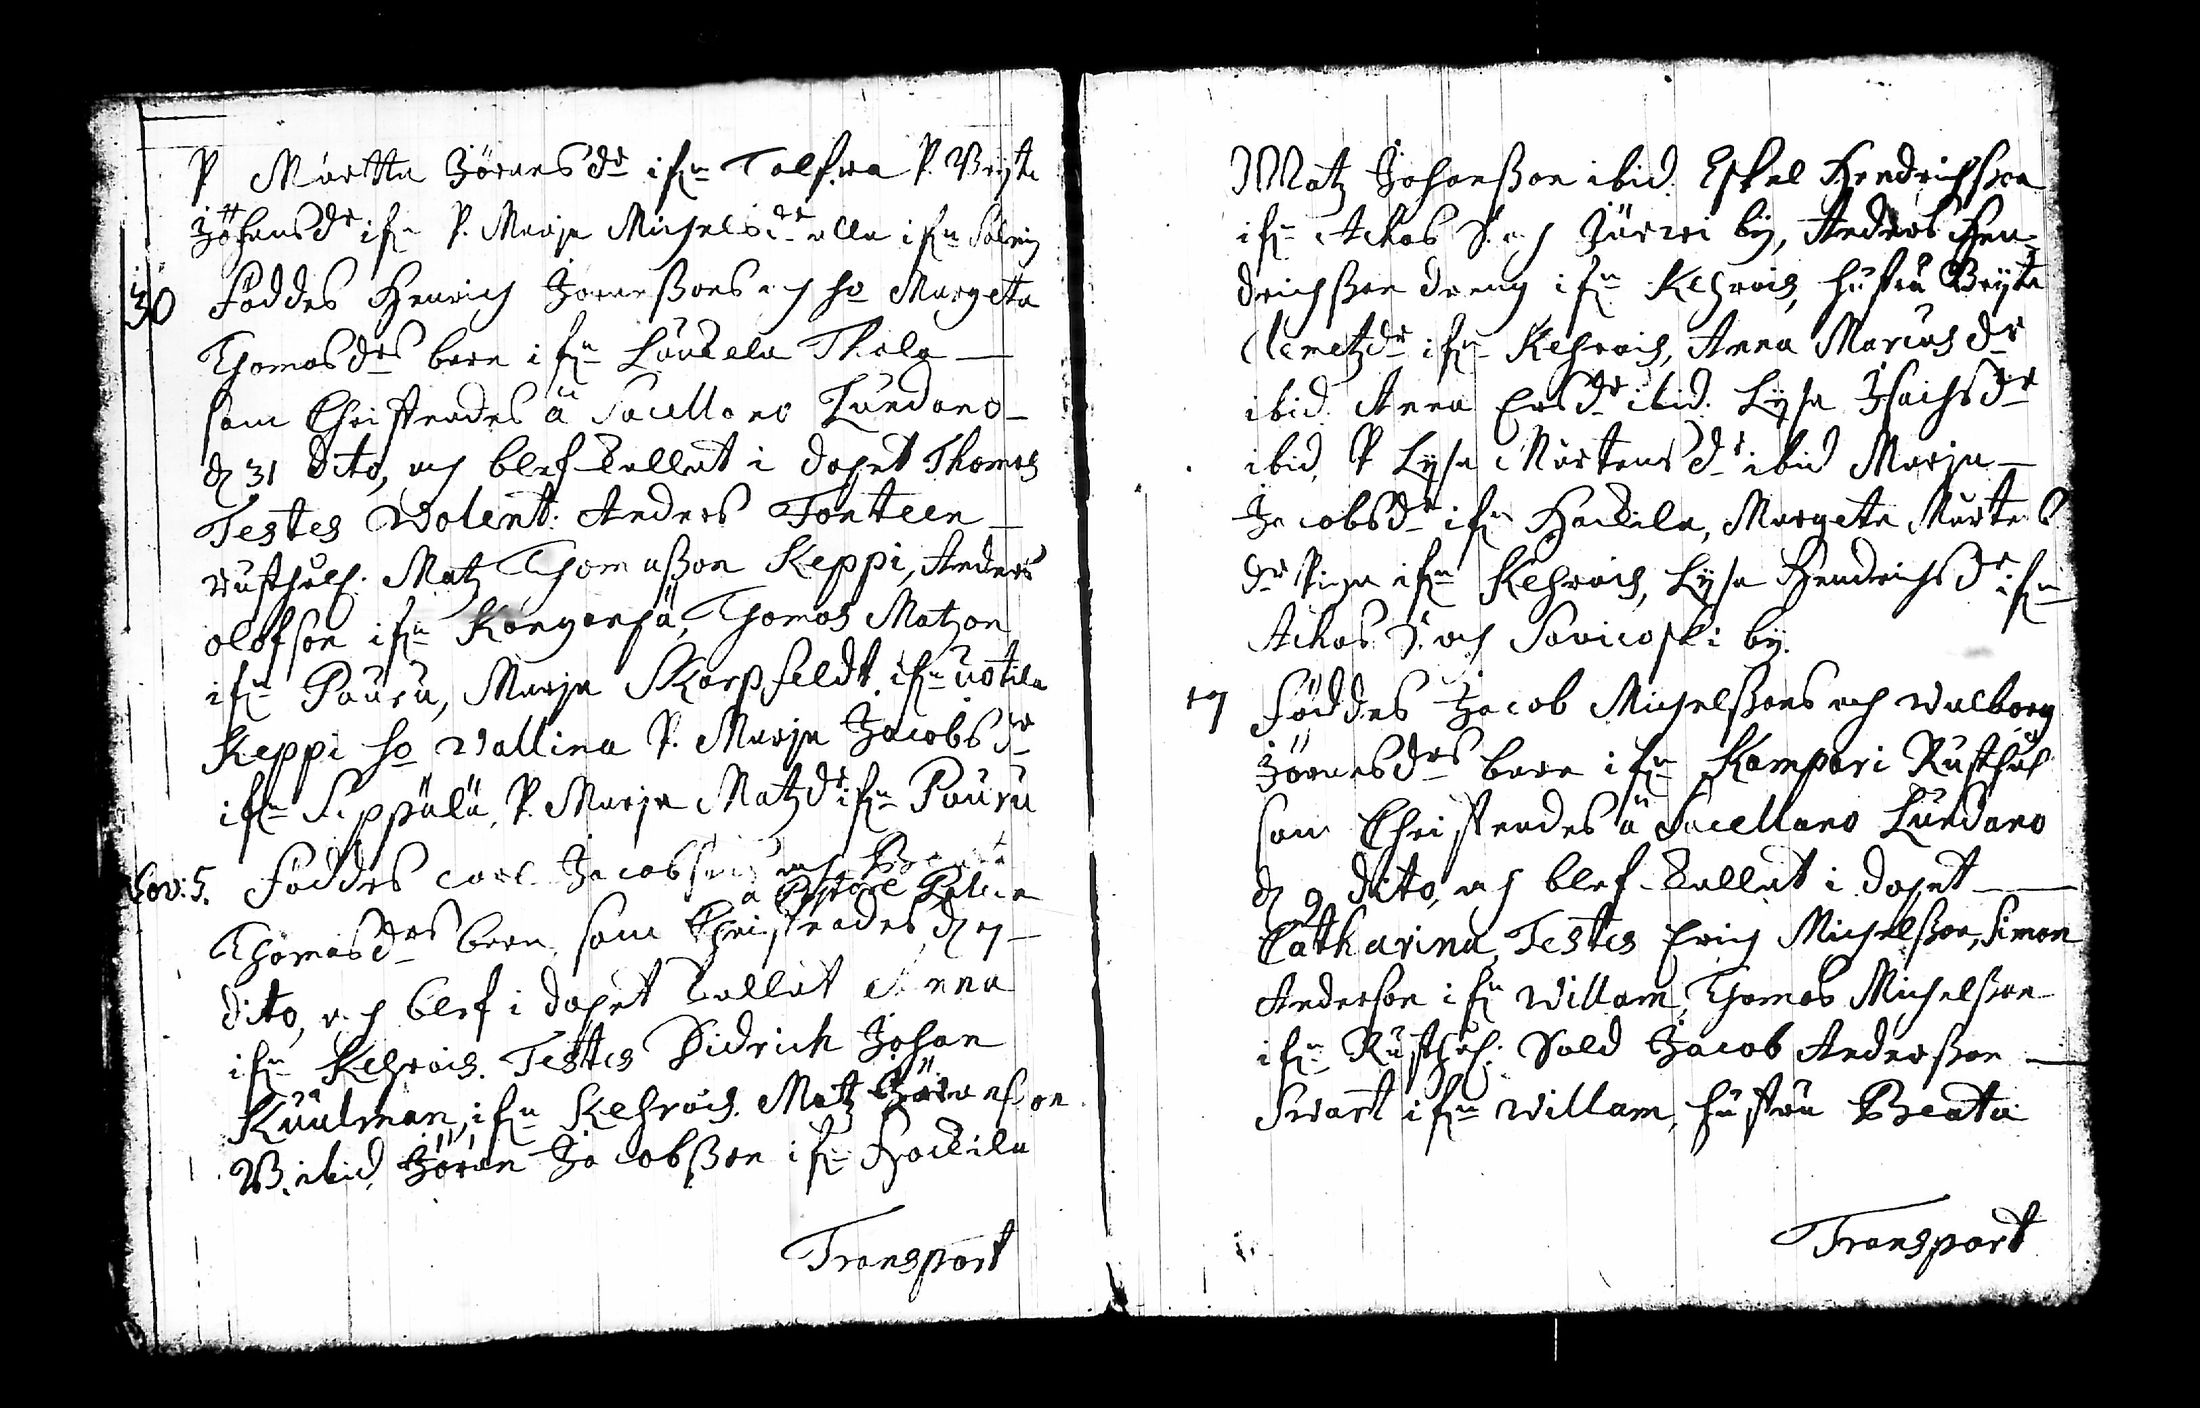 P Martta Jöransdr ifn Talfwa P. Bryta
Johansdr ifn P. Marja Michelsdr alla ifn
30 Föddes Henrich Jöranßons och ho Margeta
Thomasdrs barn ifn Laukela Thalo
som Christnades à Sacellano Lundano
d 31 dito, och blef kallat i dopet Thomas
Testes Volent: Anders Fonteen
Rusthåls: Matz Thomaßon Keppi, Anders
olofson ifn Kangarså, Thomas Matzon
ifn Pauru, Marja Skarpfeldt ifn uotila
Keppi ho Wallina P. Marja Jacobsdr
ifn Seppälä, P. Marja Matzdr ifn Pauru
Nov: 5. Föddes Carl Jacobsons och
à Pastore
Thomasdrs barn, som Christnades d 7
dito, och blef i dopet kallat Anna
ifn Kehrois. Testes Didrich Johan
Kuulman, ifn Kehrois. Matz Jöranson
B. ibid. Jöran Jacobßon ifn Hackila
Transport
Matz Johanßon ibid. Eskel Hendrichßon
ifn Achas S. och Järwi by, Anders Hen-
drichßon dräng ifn Kehrois, hustru Bryta
Clemetzdr ifn Kehrois, Anna Marcusdr
ibid. Anna Ersdr ibid. Lysa Isachsdr
ibid, P Lysa Mårtensdr ibid Marja
Jacobsdr ifn Hackila, Margeta Mårtens
dr Piga ifn Kehrois, Lysa Hendrichsdr ifn
Achas S. och Savicoski by.
7 Föddes Jacob Michelßons och Walborg
Jöransdrs barn ifn Kampari Rusthåll
som Christnades à Sacellano Lundano
d 9 dito, och blef kallat i dopet
Catharina, Testes Erich Michelßon, Simon
Anderson ifn Willam, Thomas Michelßon
ifn Rusthåll: Sold Jacob Anderßon
Swart ifn Willam, hustru Beata
Transport